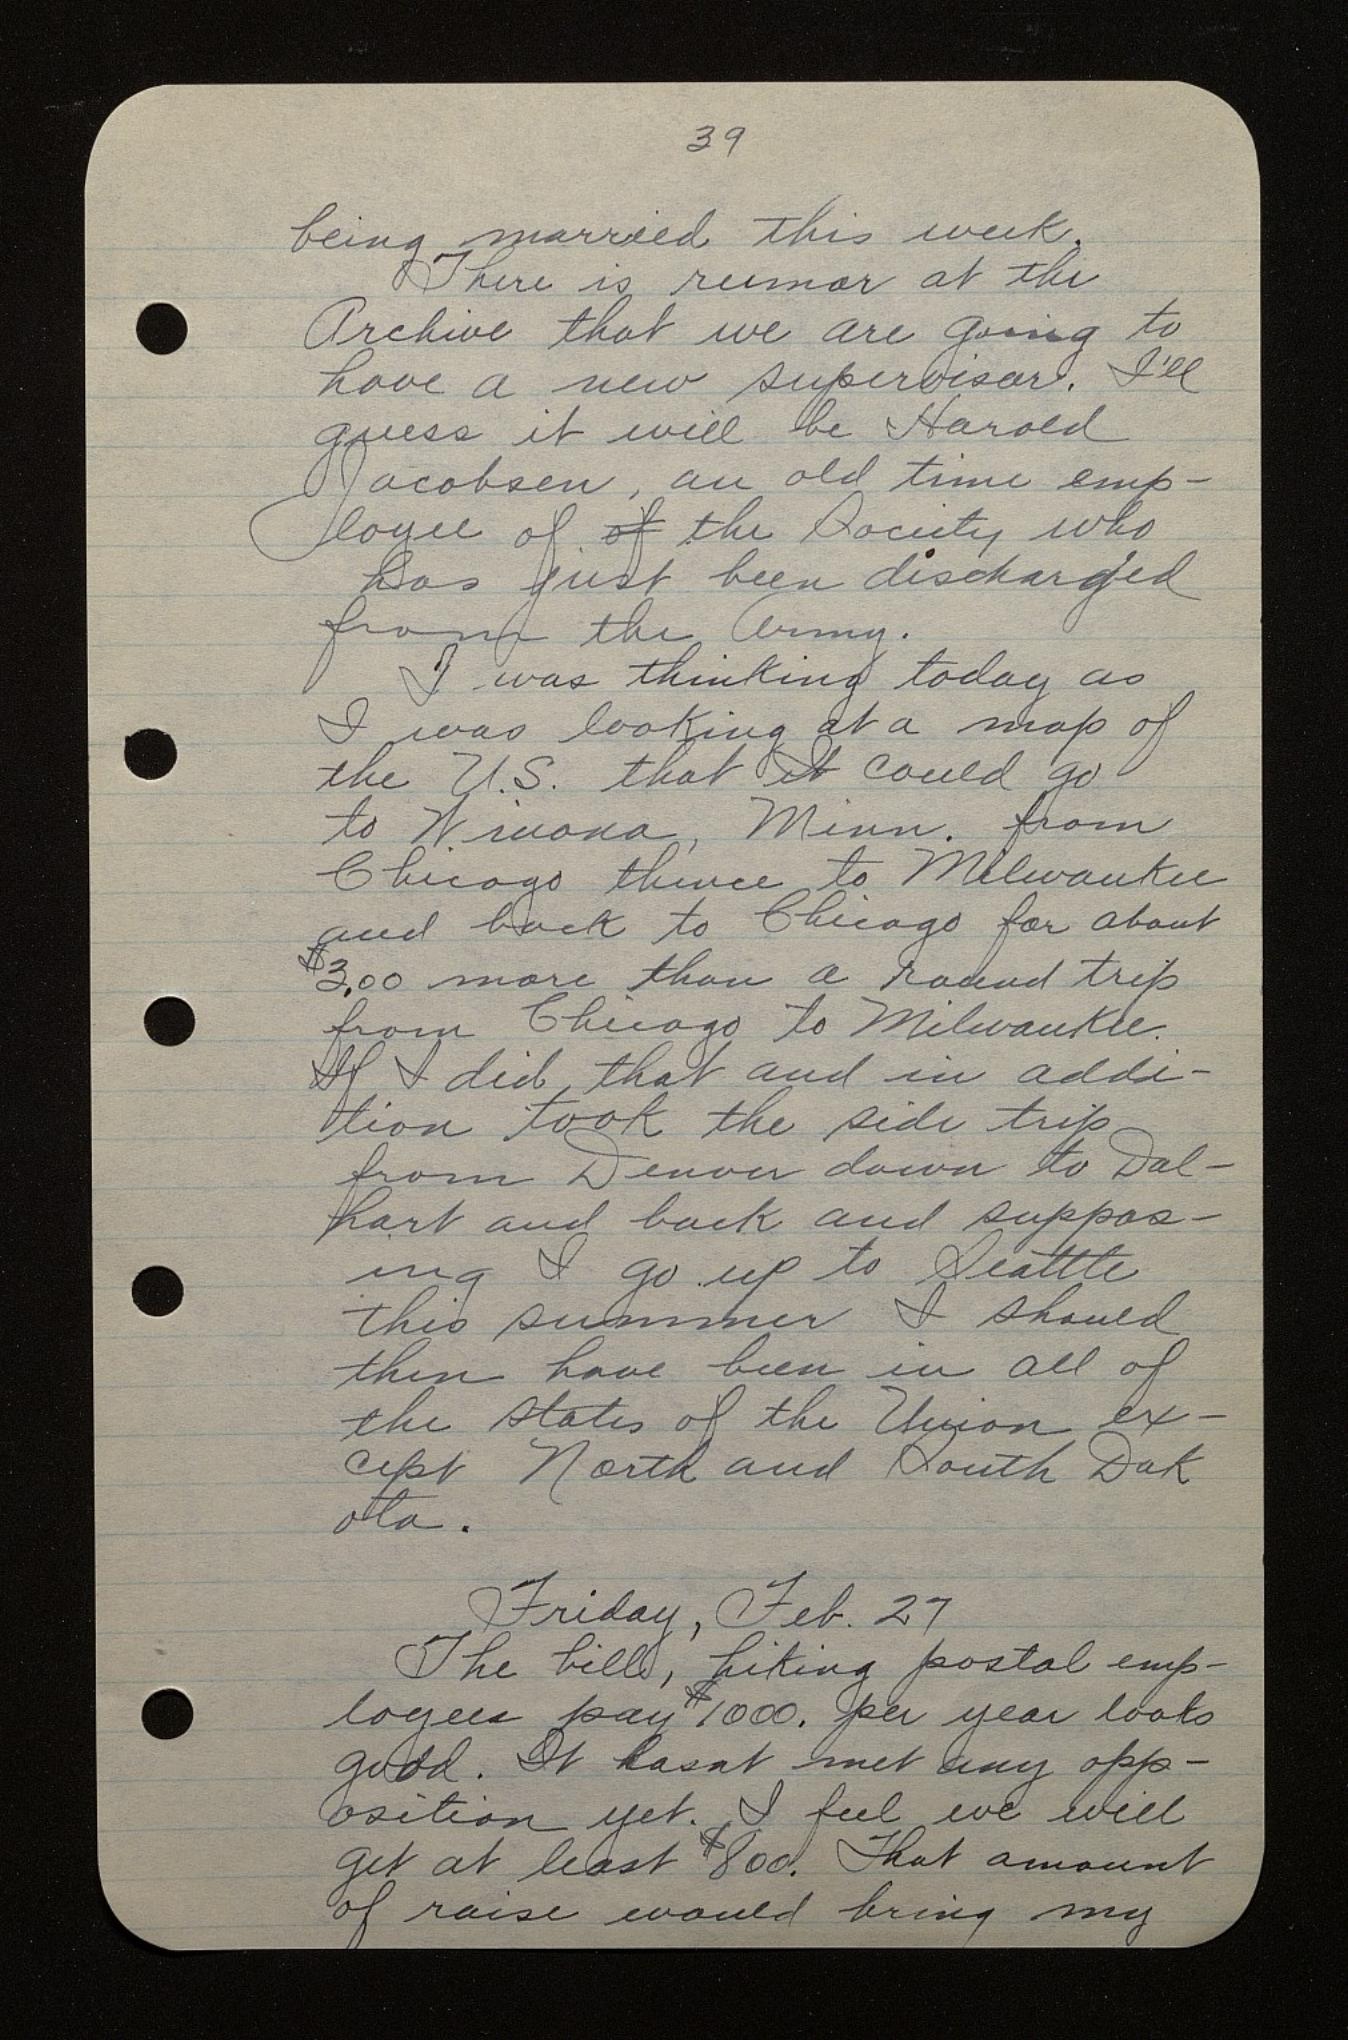 39
being married this week.
There is rumor at the
Archive that we are going to
have a new supervisor. I'll
guess it will be Harold
Jacobsen, an old time emp-
loyee of of the Society who
has just been discharged
from the Army.
I was thinking today as
I was looking at a map of
the U.S. that it could go
to Winona, Minn. from
Chicago thence to Milwaukee
and back to Chicago for about
$3.00 more than a round trip
from Chicago to Milwaukee.
If I did that and in addi-
tion took the side trip
from Denver down to Dal-
hart and back and suppos-
ing I go up to Seattle
this summer I should
then have been in all of
the states of the Union ex-
cept North and South Dak
ota.
Friday, Feb. 27
The bill, hiking postal emp-
loyees pay $1000. per year looks
good. It hasnt met any opp-
osition yet. I feel we will
get at least $800. That amount
of raise would bring my